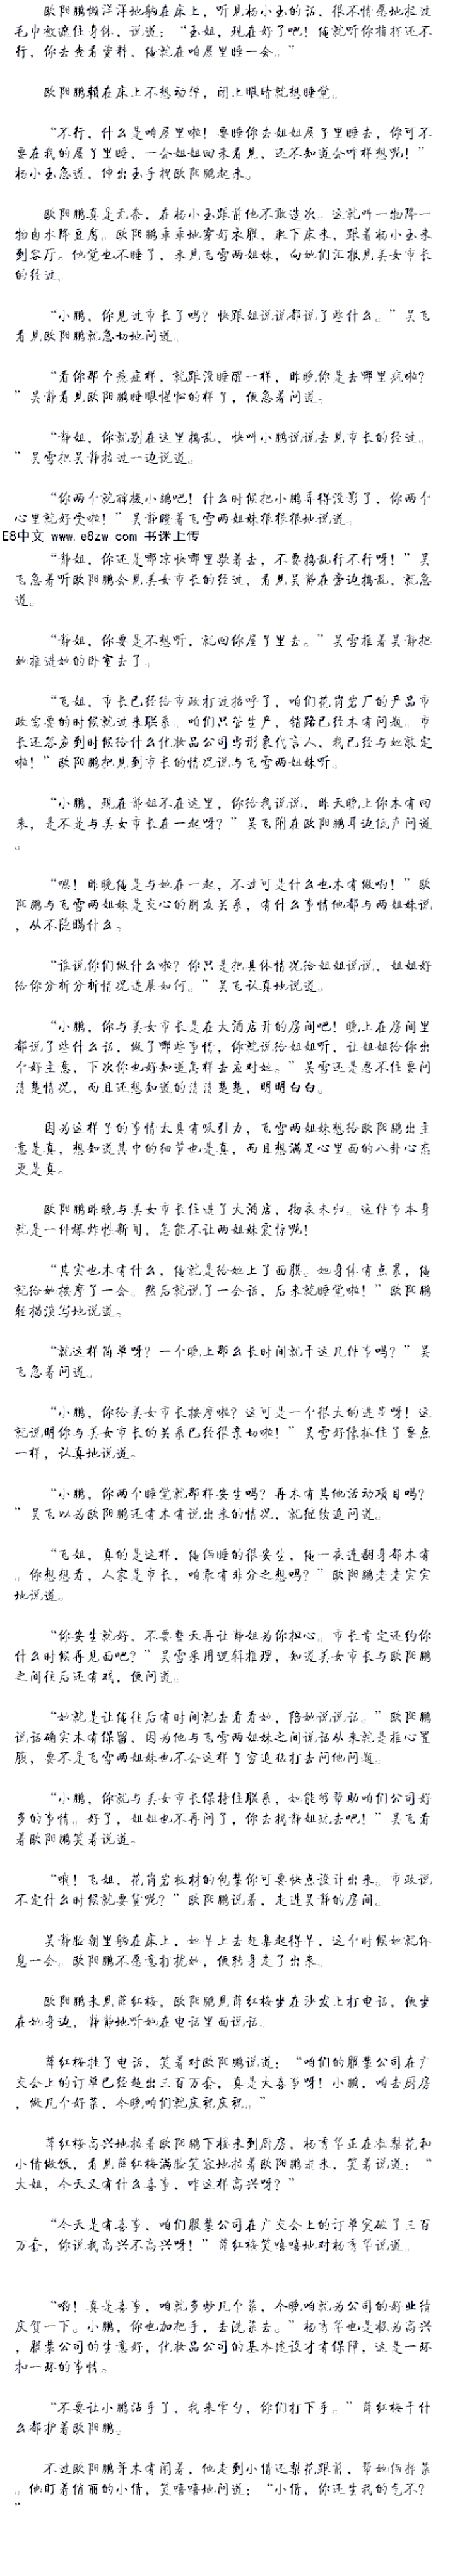 欧阳鹏懒洋洋地躺在床上，听见杨小玉的话，很不情愿地拉过
毛巾被遮住身体，说道：“玉姐，现在好了吧！俺就听你指挥还不
行，你去查看资料，俺就在咱屋里睡一会。”
欧阳鹏赖在床上不想动弹，闭上眼睛就想睡觉。
“不行，什么是咱屋里啦！要睡你去姐姐屋子里睡去，你可不
要在我的屋子里睡，一会姐姐回来看见，还不知道会咋样想呢！”
杨小玉急道，伸出玉手拽欧阳鹏起来。
欧阳鹏真是无奈，在杨小玉跟前他不敢造次。这就叫一物降一
物卤水降豆腐。欧阳鹏乖乖地穿好衣服，来下床来，跟着杨小玉来
到客厅。他觉也不睡了，来见飞雪两姐妹，向她们汇报见美女市长
的经过。
“小鹏，你见过市长了吗？快跟姐说说都说了些什么。”吴飞
看见欧阳鹏就急切地问道。
“看你那个德症样，就跟没睡醒一样，昨晚你是去哪里疯啦？
”吴静看见欧阳鹏睡眼惺忪的样子，便急着问道。
“静姐，你就别在这里捣乱，快叫小鹏说说去见市长的经过。
”吴雪把吴静拉过一边说道。
“你两个就糟蹋小鹏吧！什么时候把小鹏弄得没影了，你两个
心里就好受啦！”吴静瞪着飞雪两姐妹狠狠狠地说道。
E8中文 www.e8zw.com 书迷上传
“静姐，你还是哪凉快哪里歇着去，不要捣乱行不行呀！”吴
飞急着听欧阳鹏会见美女市长的经过，看见吴静在旁边捣乱，就急
道。
“静姐，你要是不想听，就回你屋子里去。”吴雪推着吴静把
她推进她的卧室去了。
“飞姐，市长已经给市政打过招呼了，咱们花岗岩厂的产品市
政需要的时候就过来联系。咱们只管生产，销路已经木有问题。市
长还答应到时候给什么化妆品公司当形象代言人，我已经与她敲定
啦！”欧阳鹏把见到市长的情况说与飞雪两姐妹听。
“小鹏，现在静姐不在这里，你给我说说，昨天晚上你木有回
来，是不是与美女市长在一起呀？”吴飞附在欧阳鹏耳边低声问道
。
“嗯！昨晚俺是与她在一起，不过可是什么也木有做哟！”欧
阳鹏与飞雪两姐妹是交心的朋友关系，有什么事情他都与两姐妹说
，从不隐瞒什么。
“谁说你们做什么啦？你只是把具体情况给姐姐说说，姐姐好
给你分析分析情况进展如何。”吴飞认真地说道。
“小鹏，你与美女市长是在大酒店开的房间吧！晚上在房间里
都说了些什么话，做了哪些事情，你就说给姐姐听，让姐姐给你出
个好主意，下次你也好知道怎样去应对她。”吴雪还是忍不住要问
清楚情况，而且还想知道的清清楚楚，明明白白。
因为这样子的事情太具有吸引力，飞雪两姐妹想给欧阳鹏出主
意是真，想知道其中的细节也是真，而且想满足心里面的八卦心态
更是真。
欧阳鹏昨晚与美女市长住进了大酒店，彻夜未归。这件事本身
就是一件爆炸性新闻，怎能不让两姐妹震惊呢！
“其实也木有什么，俺就是给她上了面膜。她身体有点累，俺
就给她按摩了一会。然后就说了一会话，后来就睡觉啦！”欧阳鹏
轻描淡写地说道。
“就这样简单呀？一个晚上那么长时间就干这几件事吗？”吴
飞急着问道。
“小鹏，你给美女市长按摩啦？这可是一个很大的进步呀！这
就说明你与美女市长的关系已经很亲切啦！”吴雪好像抓住了要点
一样，认真地说道。
“小鹏，你两个睡觉就那样安生吗？再木有其他活动项目吗？
”吴飞以为欧阳鹏还有木有说出来的情况，就继续追问道。
“飞姐，真的是这样，俺俩睡的很安生，俺一夜连翻身都木有
。你想想看，人家是市长，咱敢有非分之想吗？”欧阳鹏老老实实
地说道。
“你安生就好，不要整天再让静姐为你担心。市长肯定还约你
什么时候再见面吧？”吴雪采用逻辑推理，知道美女市长与欧阳鹏
之间往后还有戏，便问道。
“她就是让俺往后有时间就去看看她，陪她说说话。”欧阳鹏
说话确实木有保留，因为他与飞雪两姐妹之间说话从来就是推心置
腹，要不是飞雪两姐妹也不会这样子穷追猛打去问他问题。
“小鹏，你就与美女市长保持住联系，她能够帮助咱们公司好
多的事情。好了，姐姐也不再问了，你去找静姐玩去吧！”吴飞看
着欧阳鹏笑着说道。
“哦！飞姐，花岗岩板材的包装你可要快点设计出来。市政说
不定什么时候就要货呢？”欧阳鹏说着，走进吴静的房间。
吴静脸朝里躺在床上，她早上去赶集起得早，这个时候她就休
息一会。欧阳鹏不愿意打扰她，便转身走了出来。
欧阳鹏来见薛红梅，欧阳鹏见薛红梅坐在沙发上打电话，便坐
在她身边，静静地听她在电话里面说话。
薛红梅挂了电话，笑着对欧阳鹏说道：“咱们的服装公司在广
交会上的订单已经超出三百万套，真是大喜事呀！小鹏，咱去厨房
，做几个好菜，今晚咱们就庆祝庆祝。”
薛红梅高兴地拉着欧阳鹏下楼来到厨房，杨秀华正在教梨花和
小倩做饭，看见薛红梅满脸笑容地拉着欧阳鹏进来，笑着说道：“
大姐，今天又有什么喜事，咋这样高兴呀？”
“今天是有喜事，咱们服装公司在广交会上的订单突破了三百
万套，你说我高兴不高兴呀！”薛红梅笑嘻嘻地对杨秀华说道。
“哟！真是喜事，咱就多炒几个菜，今晚咱就为公司的好业绩
庆贺一下。小鹏，你也加把手，去洗菜去。”杨秀华也是极为高兴
，服装公司的生意好，化妆品公司的基本建设才有保障，这是一环
扣一环的事情。
“不要让小鹏沾手了，我来掌勺，你们打下手。”薛红梅干什
么都护着欧阳鹏。
不过欧阳鹏并木有闲着，他走到小倩还梨花跟前，帮她俩择菜
。他盯着俏丽的小倩，笑嘻嘻地问道：“小倩，你还生我的气不？
”